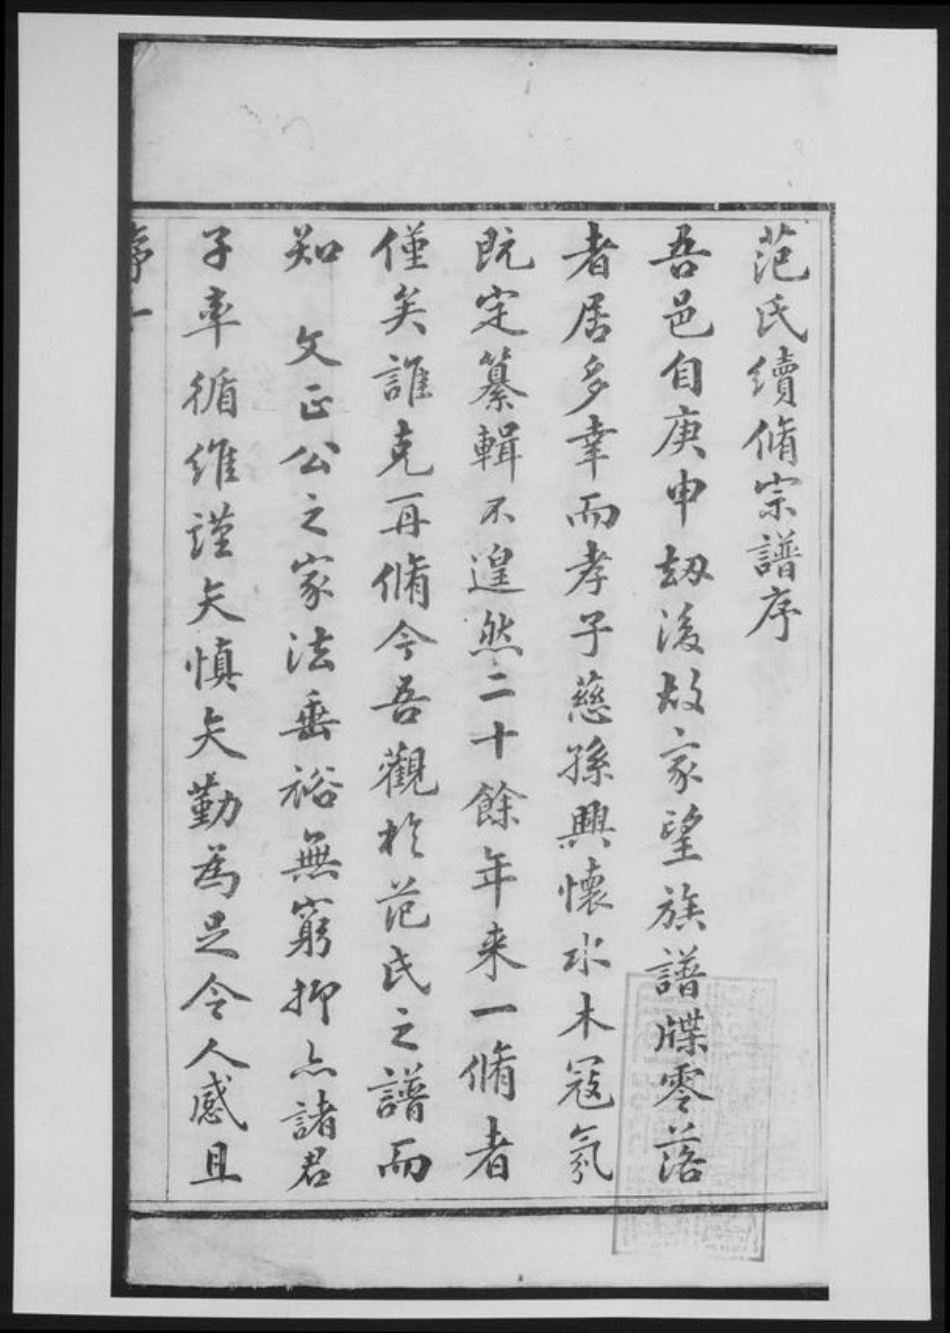 范氏續脩宗譜序
吾邑自庚申劫後故家望族譜牒零落
者居多幸而孝子慈孫興懷水木寇氛
既定纂輯不遑然二十餘年来一脩者
僅矣誰克再脩今吾觀於范氏之譜而
知 文正公之家法垂裕無窮抑亦諸君
子率循維謹矢慎矢勤為足令人感且
序一